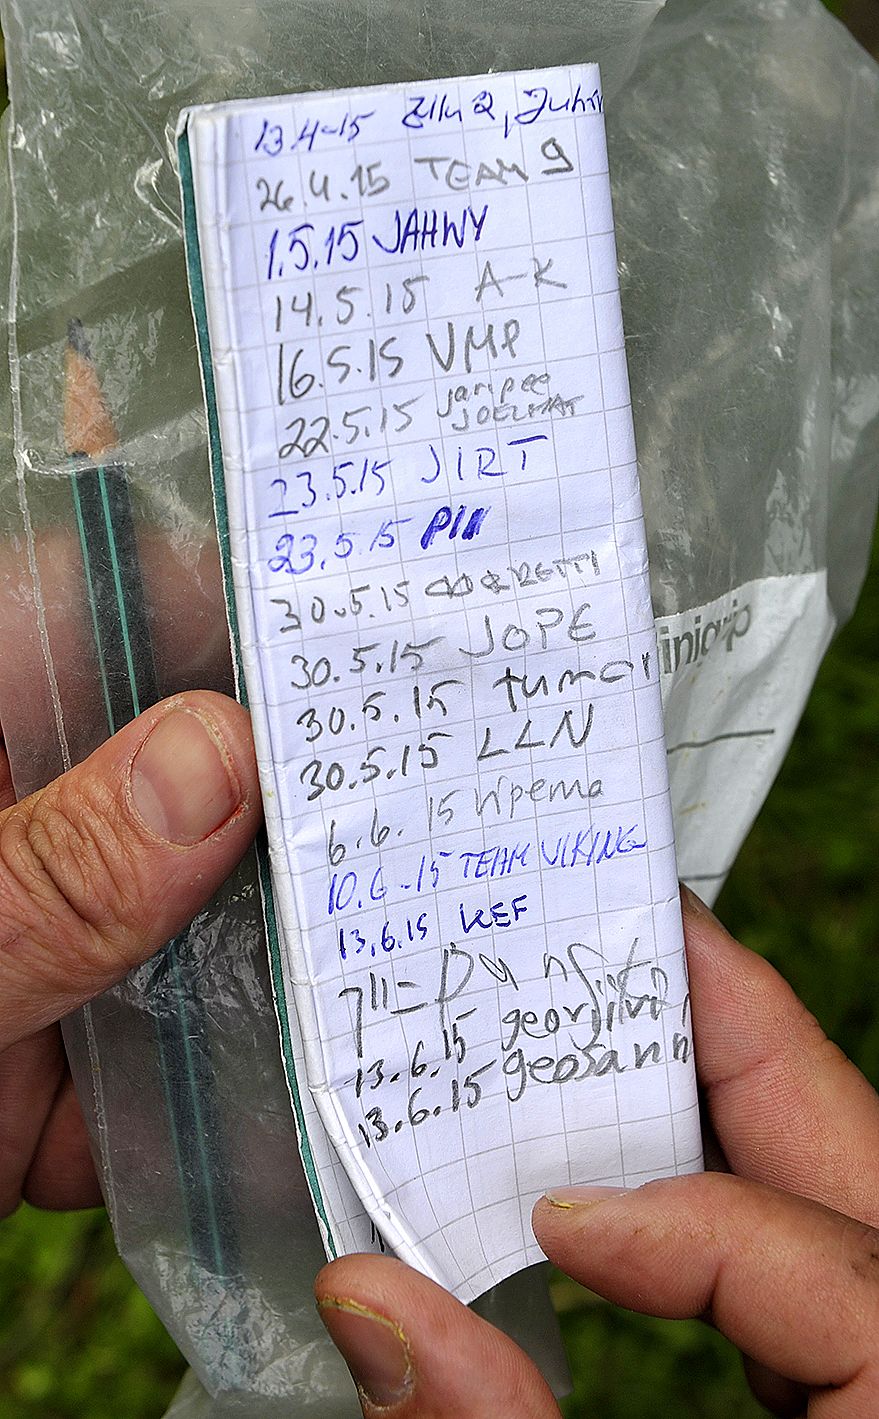 13.4-15
26.4.15 TEAM 9
1.5.15 JAHWY
14.5.15 A-K
16.5.15 VMP
22.5.15 jaripee
JOELMAT
23.5.15 JIRT
23.5.15 PIN
30.5.15
30.5.15 JOPE
30.5.15 tumor
30.5.15 LLN
6.6.15 Nipema
10.6-15 TEAM VIKING
13.6.15 KEF
13.6.15
13.6.15 geosann